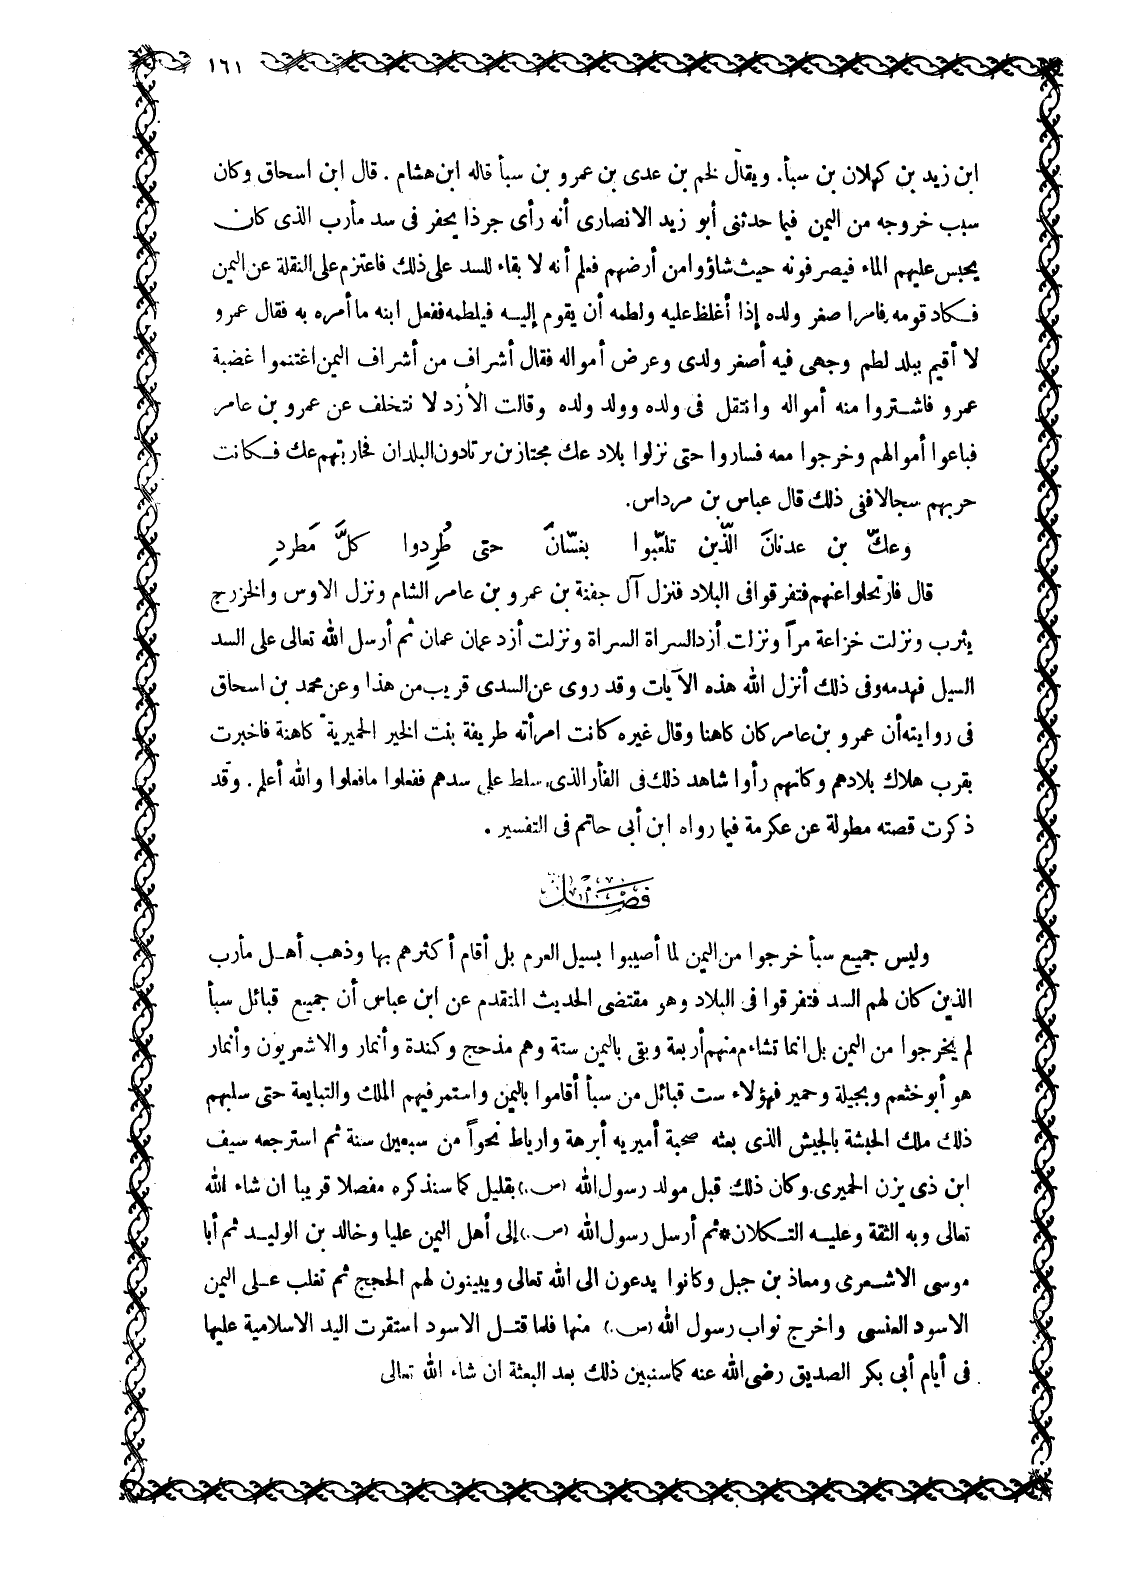 ١٦١
ابن زيد بن كهلان بن سبأ. ويقال لخم بن عدى بن عمرو بن سبأ قاله ابن هشام . قال ابن اسحاق وكان
سبب خروجه من اليمن فيما حدثنى أبو زيد الانصارى أنه رأى جرذا يحفر فى سد مأرب الذى كان
يحبس عليهم الماء فيصرفونه حيث شاؤوا من أرضهم فعلم أنه لا بقاء للسد على ذلك فاعتزم على النقلة عن اليمن
فكاد قومه فامرا صغر ولده إذا أغلظ عليه ولطمه أن يقوم إليه فيلطمه ففعل ابنه ما أمره به فقال عمرو
لا أقيم ببلد لطم وجهى فيه أصغر ولدى وعرض أمواله فقال أشراف من أشراف اليمن اغتنموا غضبة
عمرو فاشتروا منه أمواله وانتقل فى ولده وولد ولده وقالت الأزد لا نتخلف عن عمرو بن عامر
فباعوا أموالهم وخرجوا معه فساروا حتى نزلوا بلاد عك مجتازين يرتادون البلدان فحاربتهم عك فكانت
حربهم سجالا ففى ذلك قال عباس بن مرداس.
وعكّ بن عدنانَ الذّين تلعّبوا بغسّانَ حتى طُرِدوا كلَّ مَطردِ
قال فارتحلوا عنهم فتفرقوا فى البلاد فنزل آل جفنة بن عمرو بن عامر الشام ونزل الاوس والخزرج
يثرب ونزلت خزاعة مراً ونزلت أزد السراة السراة ونزلت أزد عمان عمان ثم أرسل الله تعالى على السد
السيل فهدمه وفى ذلك أنزل الله هذه الآيات وقد روى عن السدى قريب من هذا وعن محمد بن اسحاق
فى روايته أن عمرو بن عامر كان كاهنا وقال غيره كانت امرأته طريفة بنت الخير الحميرية كاهنة فاخبرت
بقرب هلاك بلادهم وكانهم رأوا شاهد ذلك فى الفأر الذى سلط على سدهم ففعلوا ما فعلوا والله أعلم . وقد
ذكرت قصته مطولة عن عكرمة فيما رواه ابن أبى حاتم فى التفسير .
فصل
وليس جميع سبأ خرجوا من اليمن لما أصيبوا بسيل العرم بل أقام أكثرهم بها وذهب أهل مأرب
الذين كان لهم السد فتفرقوا فى البلاد وهو مقتضى الحديث المتقدم عن ابن عباس أن جميع قبائل سبأ
لم يخرجوا من اليمن بل انما تشاءم منهم أربعة وبقى باليمن ستة وهم مذحج وكندة وأنمار والاشعريون وأنمار
هو أبو خثعم وبجيلة وحمير فهؤلاء ست قبائل من سبأ أقاموا باليمن واستمر فيهم الملك والتبايعة حتى سلبهم
ذلك ملك الحبشة بالجيش الذى بعثه صحبة أميريه أبرهة وارياط نحواً من سبعين سنة ثم استرجعه سيف
ابن ذى يزن الحميرى وكان ذلك قبل مولد رسول الله (ص.) بقليل كما سنذكره مفصلا قريبا ان شاء الله
تعالى وبه الثقة وعليه التكلان*ثم أرسل رسول الله (ص.) إلى أهل اليمن عليا وخالد بن الوليد ثم أبا
موسى الاشعرى ومعاذ بن جبل وكانوا يدعون الى الله تعالى ويبينون لهم الحجج ثم تغلب على اليمن
الاسود العنسى واخرج نواب رسول الله (ص.) منها فلما قتل الاسود استقرت اليد الاسلامية عليها
فى أيام أبى بكر الصديق رضى الله عنه كما سنبين ذلك بعد البعثة ان شاء الله تعالى